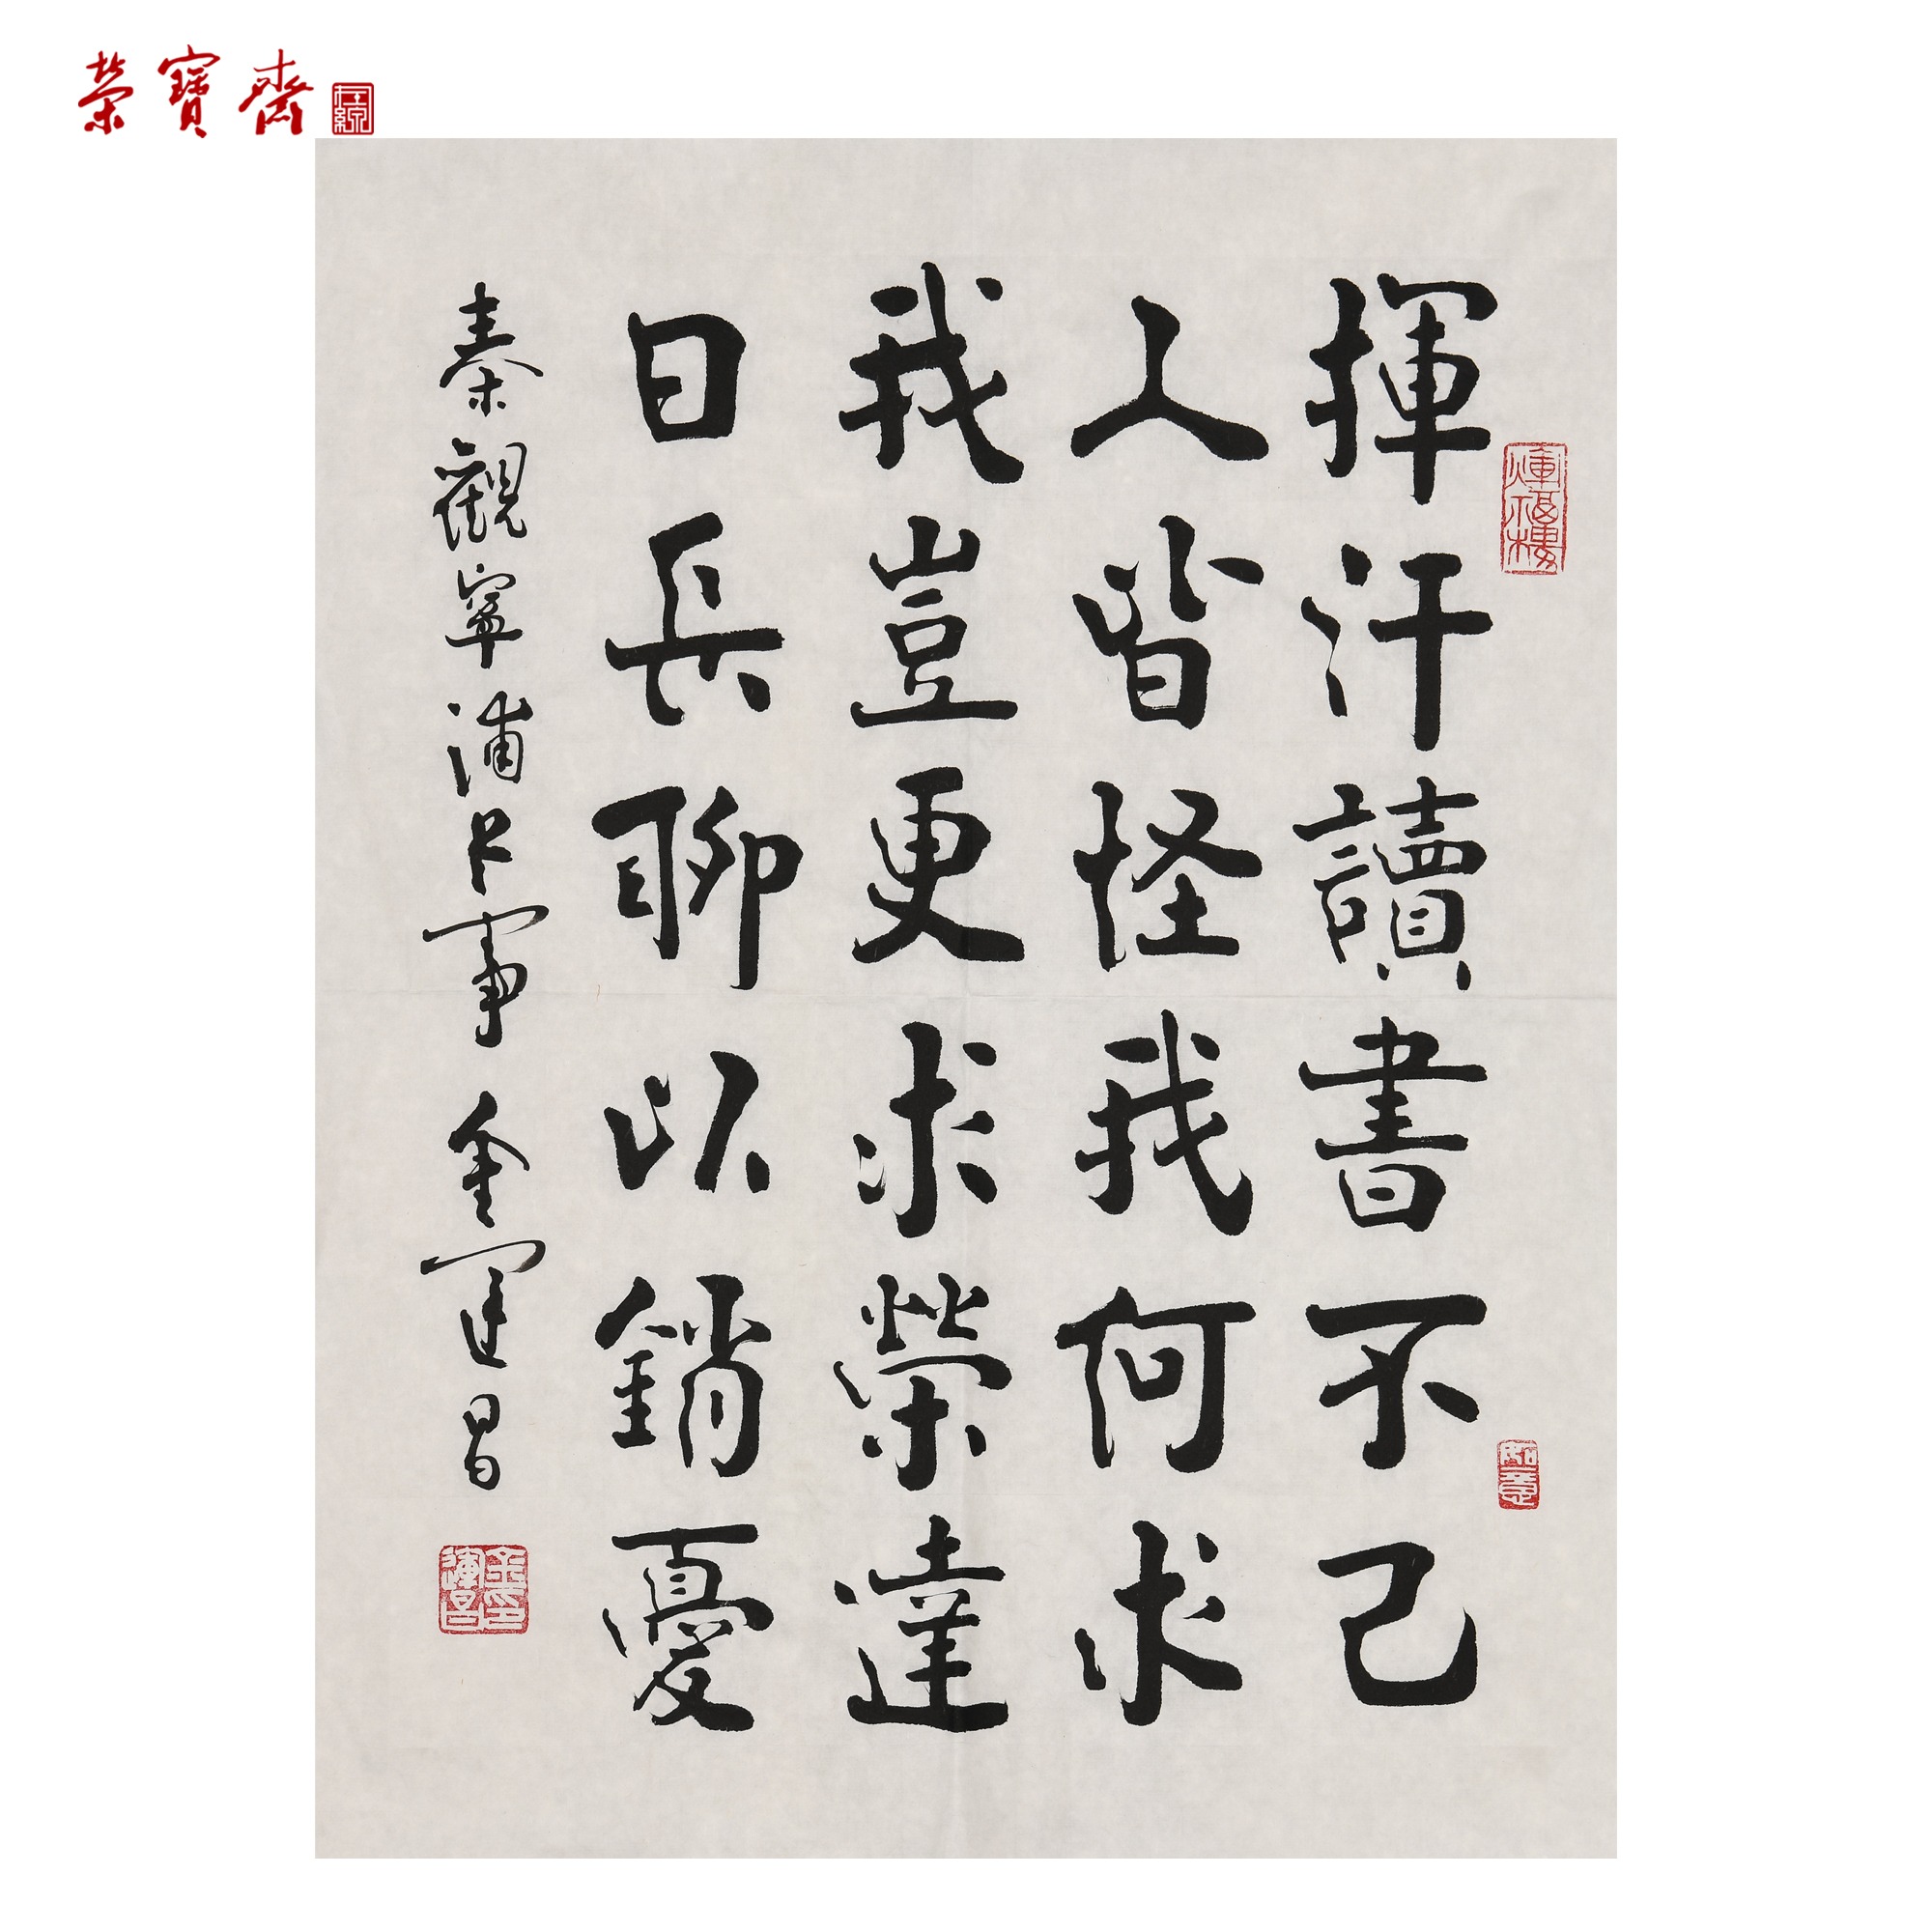 榮寶齋
在線
揮汗讀書不已
人皆怪我何求
我豈更求榮達
日長聊以銷憂
秦觀寧浦書事 金運昌
如意
金運昌印